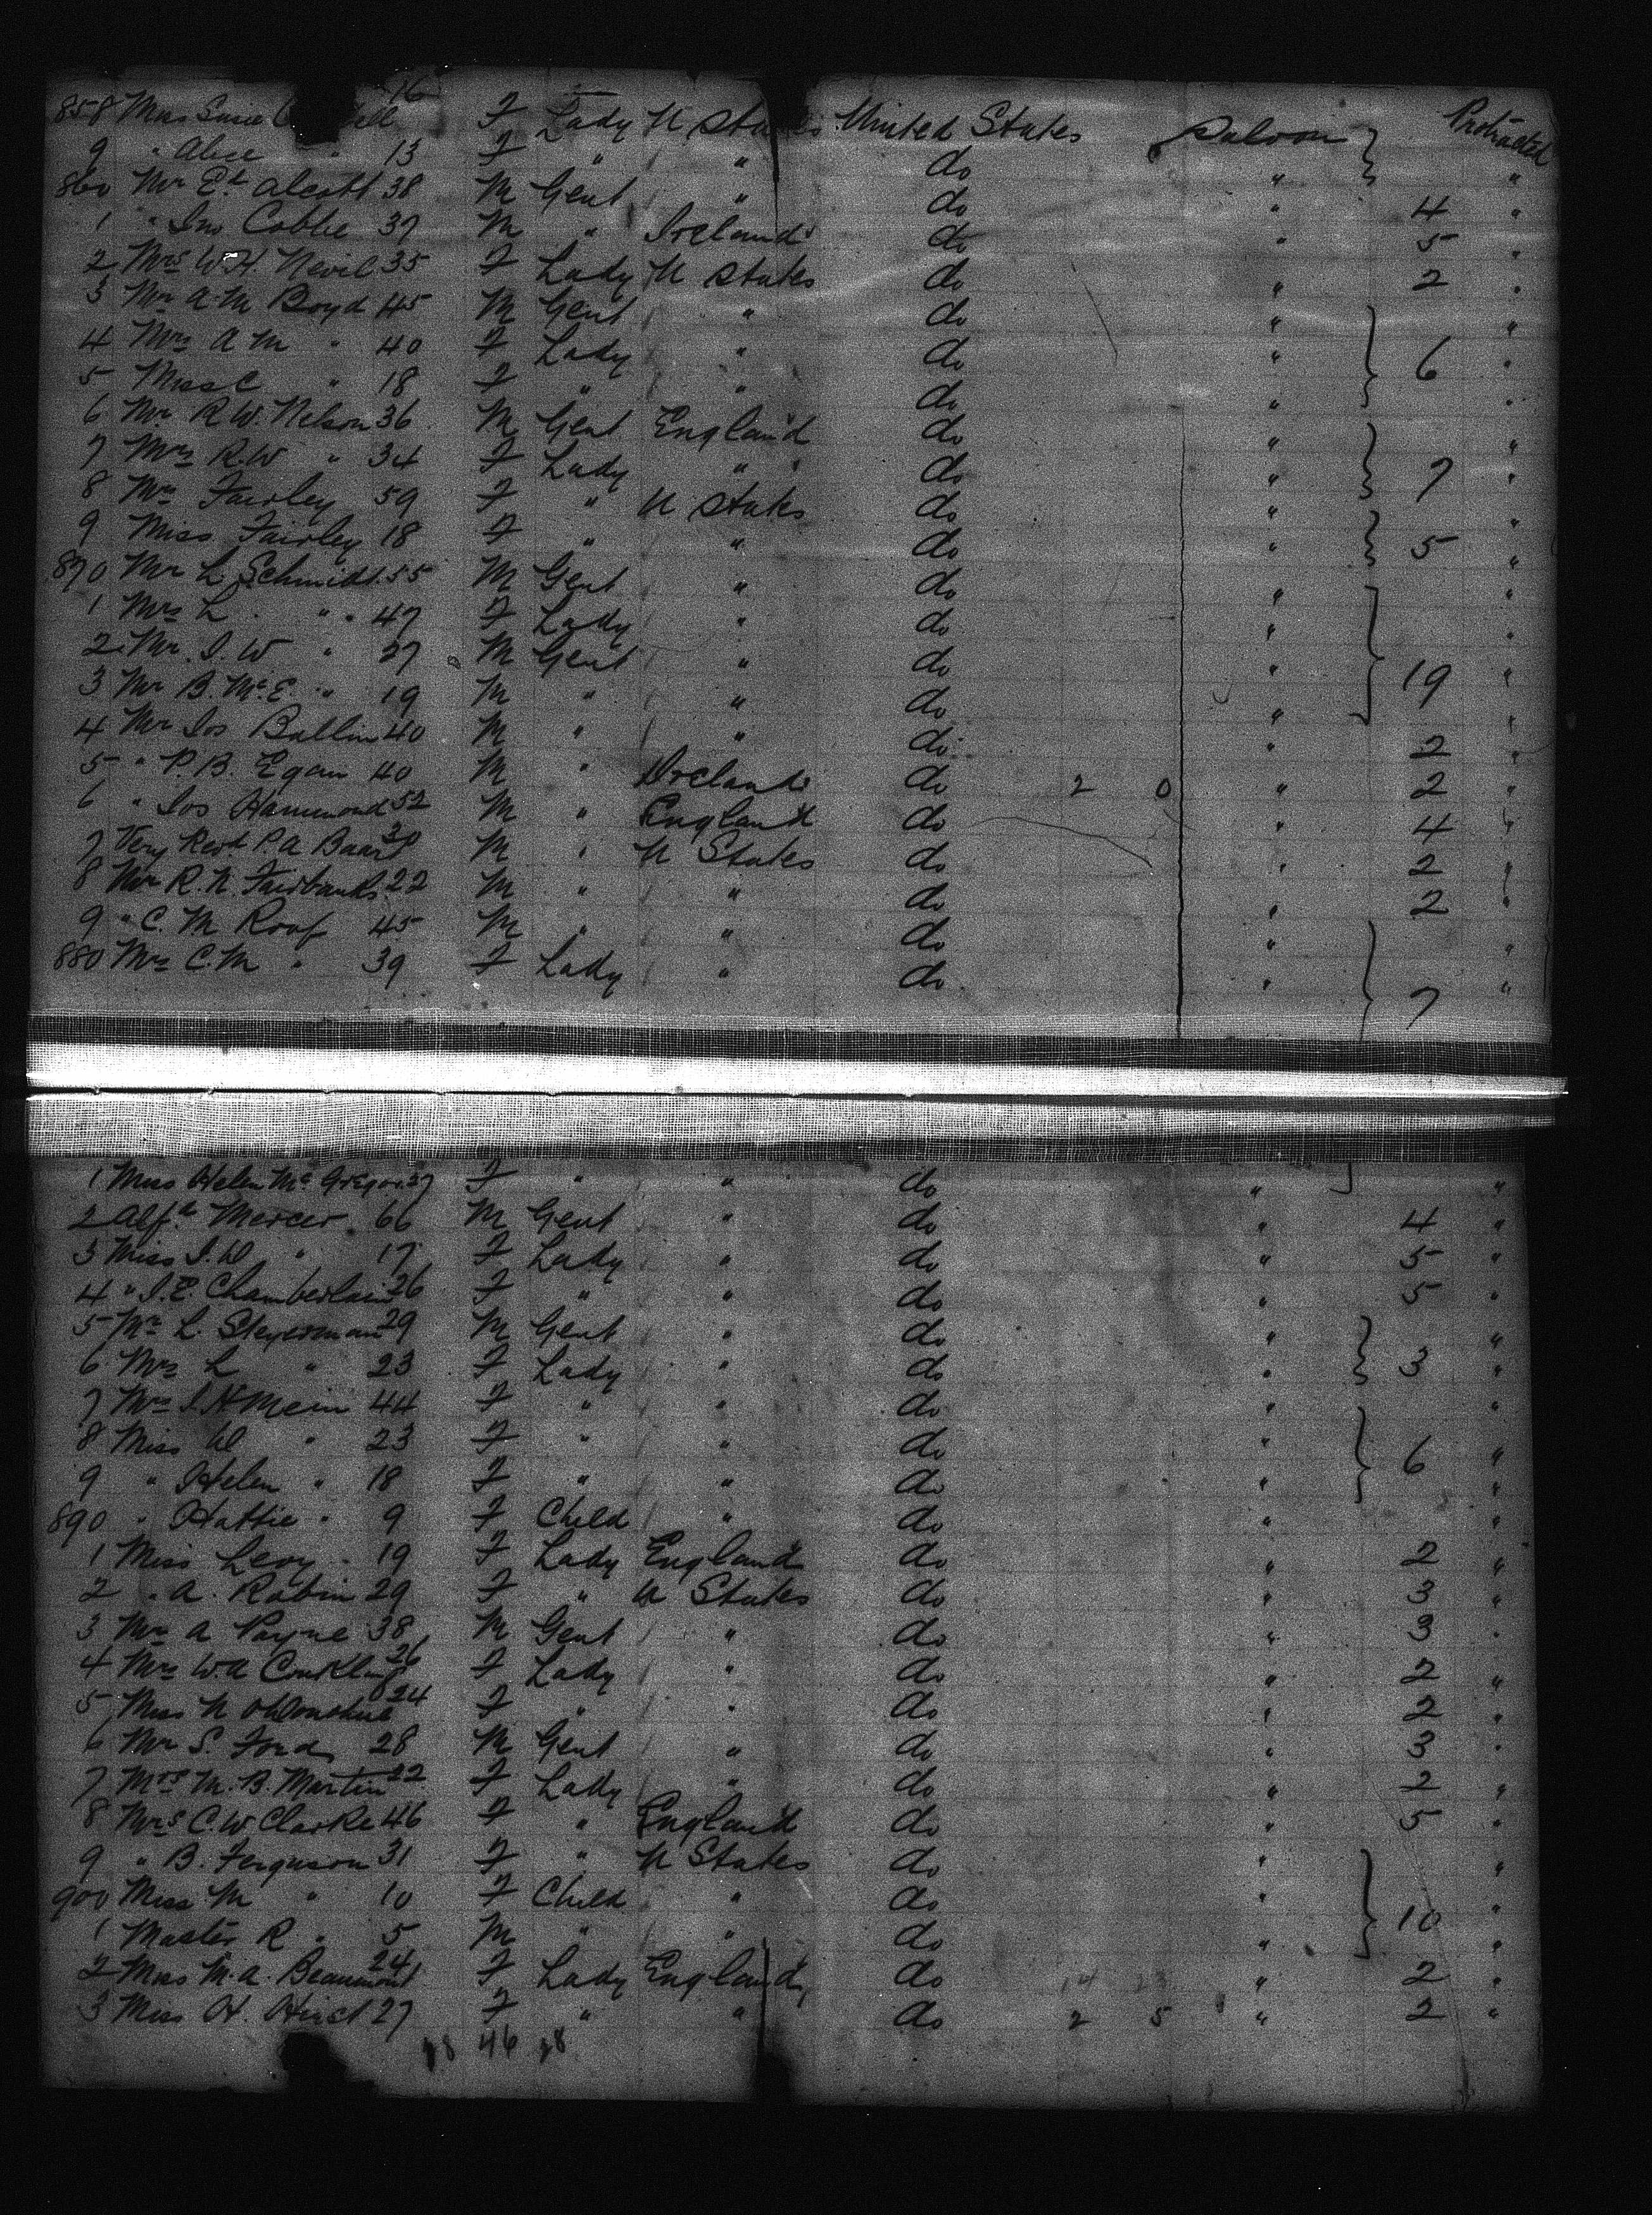 858 Miss Susie 16 F Lady U States United States Saloon Protracted
9 " Alice " 13 F " " do " "
860 Mr Ed Alcott 38 M Gent " do " 4 "
1 " Jno Cobbe 37 M " Ireland do " 5 "
2 Mrs W.H. Nevil 35 F Lady U States do " 2 "
3 Mr A.M Boyd 45 M Gent " do " "
4 Mrs A M " 40 F Lady " do " 6 "
5 Miss C " 18 F " " do " "
6 Mr R.W. Nelson 36 M Gent England do " "
7 Mrs R.W " 34 F Lady " do " 7 "
8 Mrs Fairley 59 F " U States do " "
9 Miss Fairley 18 F " " do " 5 "
870 Mr L. Schmidt 55 M Gent " do " "
1 Mrs L " 47 F Lady " do " "
2 Mr J. W " 27 M Gent " do " 19 "
3 Mr B. McE. " 19 M " " do " "
4 Mr Jos Ballin 40 M " " do " 2 "
5 " P. B. Egan 40 M " Ireland do 2 0 " 2 "
6 " Jos Hammond 52 M " England do " 4 "
7 Very Revd P. A Baart 30 M " U States do " 2 "
8 Mr R. N. Fairbanks 22 M " " do " 2 "
9 " C. M Roof 45 M " " do " "
880 Mrs C. M " 39 F Lady " do " 7 "
1 Miss Helen McGregor 37 F " " do " "
2 Alfd Mercer 66 M Gent " do " 4 "
3 Miss I. W " 17 F Lady " do " 5 "
4 " I. E. Chamberlain 26 F " " do " 5 "
5 Mr L. Stegerman 29 M Gent " do " "
6 Mrs L " 23 F Lady " do " 3 "
7 Mrs J H Mein 44 F " " do " "
8 Miss W " 23 F " " do " 6 "
9 " Helen " 18 F " " do " "
890 " Hattie " 9 F Child " do " "
1 Miss Levy 19 F Lady England do " 2 "
2 " A. Rabin 29 F " U States do " 3 "
3 Mr A Payne 38 M Gent " do " 3 "
4 Mrs W A Conkling 26 F Lady " do " 2 "
5 Miss N O'Donohue 24 F " " do " 2 "
6 Mr S. Ford 28 M Gent " do " 3 "
7 Mrs M. B. Martin 22 F Lady " do " 2 "
8 Mrs C. W Clarke 46 F " England do " 5 "
9 " B. Ferguson 31 F " U States do " "
900 Miss M " 10 F Child " do " 10 "
1 Master R " 5 M " " do " "
2 Miss M. A. Beaumont 24 F Lady England do 14 23 " 2 "
3 Miss H. Hirst 27 F " " do 2 5 " 2 "
18 46 18